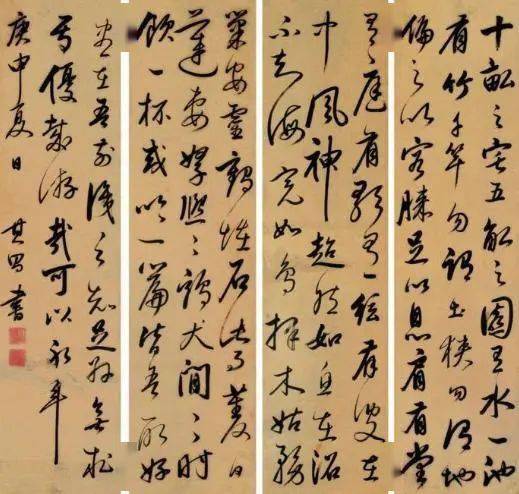 十畝之宅五畝之園有水一池
有竹千竿勿謂土狹勿謂地
偏足以容膝足以息肩有堂
有庭有歌有絃有叟在
中風神超然如魚在沼
不知海寬如鳥擇木姑務
巢安靈鶴怪石紫菱白
蓮妻孥熙熙鷄犬閒閒時
飲一杯或吟一篇皆吾所好
盡在吾前識分知足外無求
焉優哉游哉可以永年
庚申夏日 其昌書